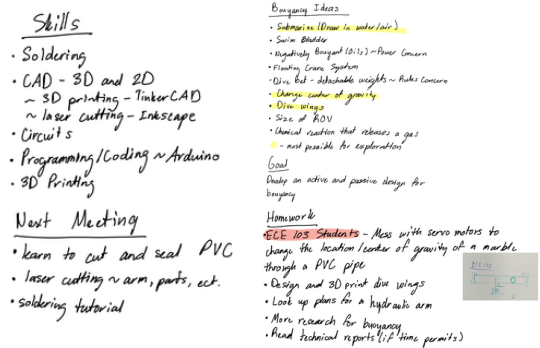 Skills
• Soldering
• CAD - 3D and 2D
~ 3D printing - TinkerCAD
~ laser cutting - Inkscape
• Circuits
• Programming/Coding ~ Arduino
• 3D Printing
Next Meeting
• learn to cut and seal PVC
• laser cutting ~ arm, parts, ect.
• soldering tutorial
Buoyancy Ideas
• Submarine (Draw in water/air)
• Swim Bladder
• Negatively Buoyant (Oils) ~ Power Concern
• Floating Crane System
• Dive Belt - detachable weights ~ Rules Concern
• Change center of gravity
• Dive wings
• Size of ROV
• Chemical reaction that releases a gas
- most possible for exploration
Goal
Develop an active and passive design for
buoyancy
Homework
• ECE 103 Students - Mess with servo motors to
change the location/center of gravity of a marble
through a PVC pipe
• Design and 3D print dive wings
• Look up plans for a hydraulic arm
• More research for buoyancy
• Read technical reports (if time permits)